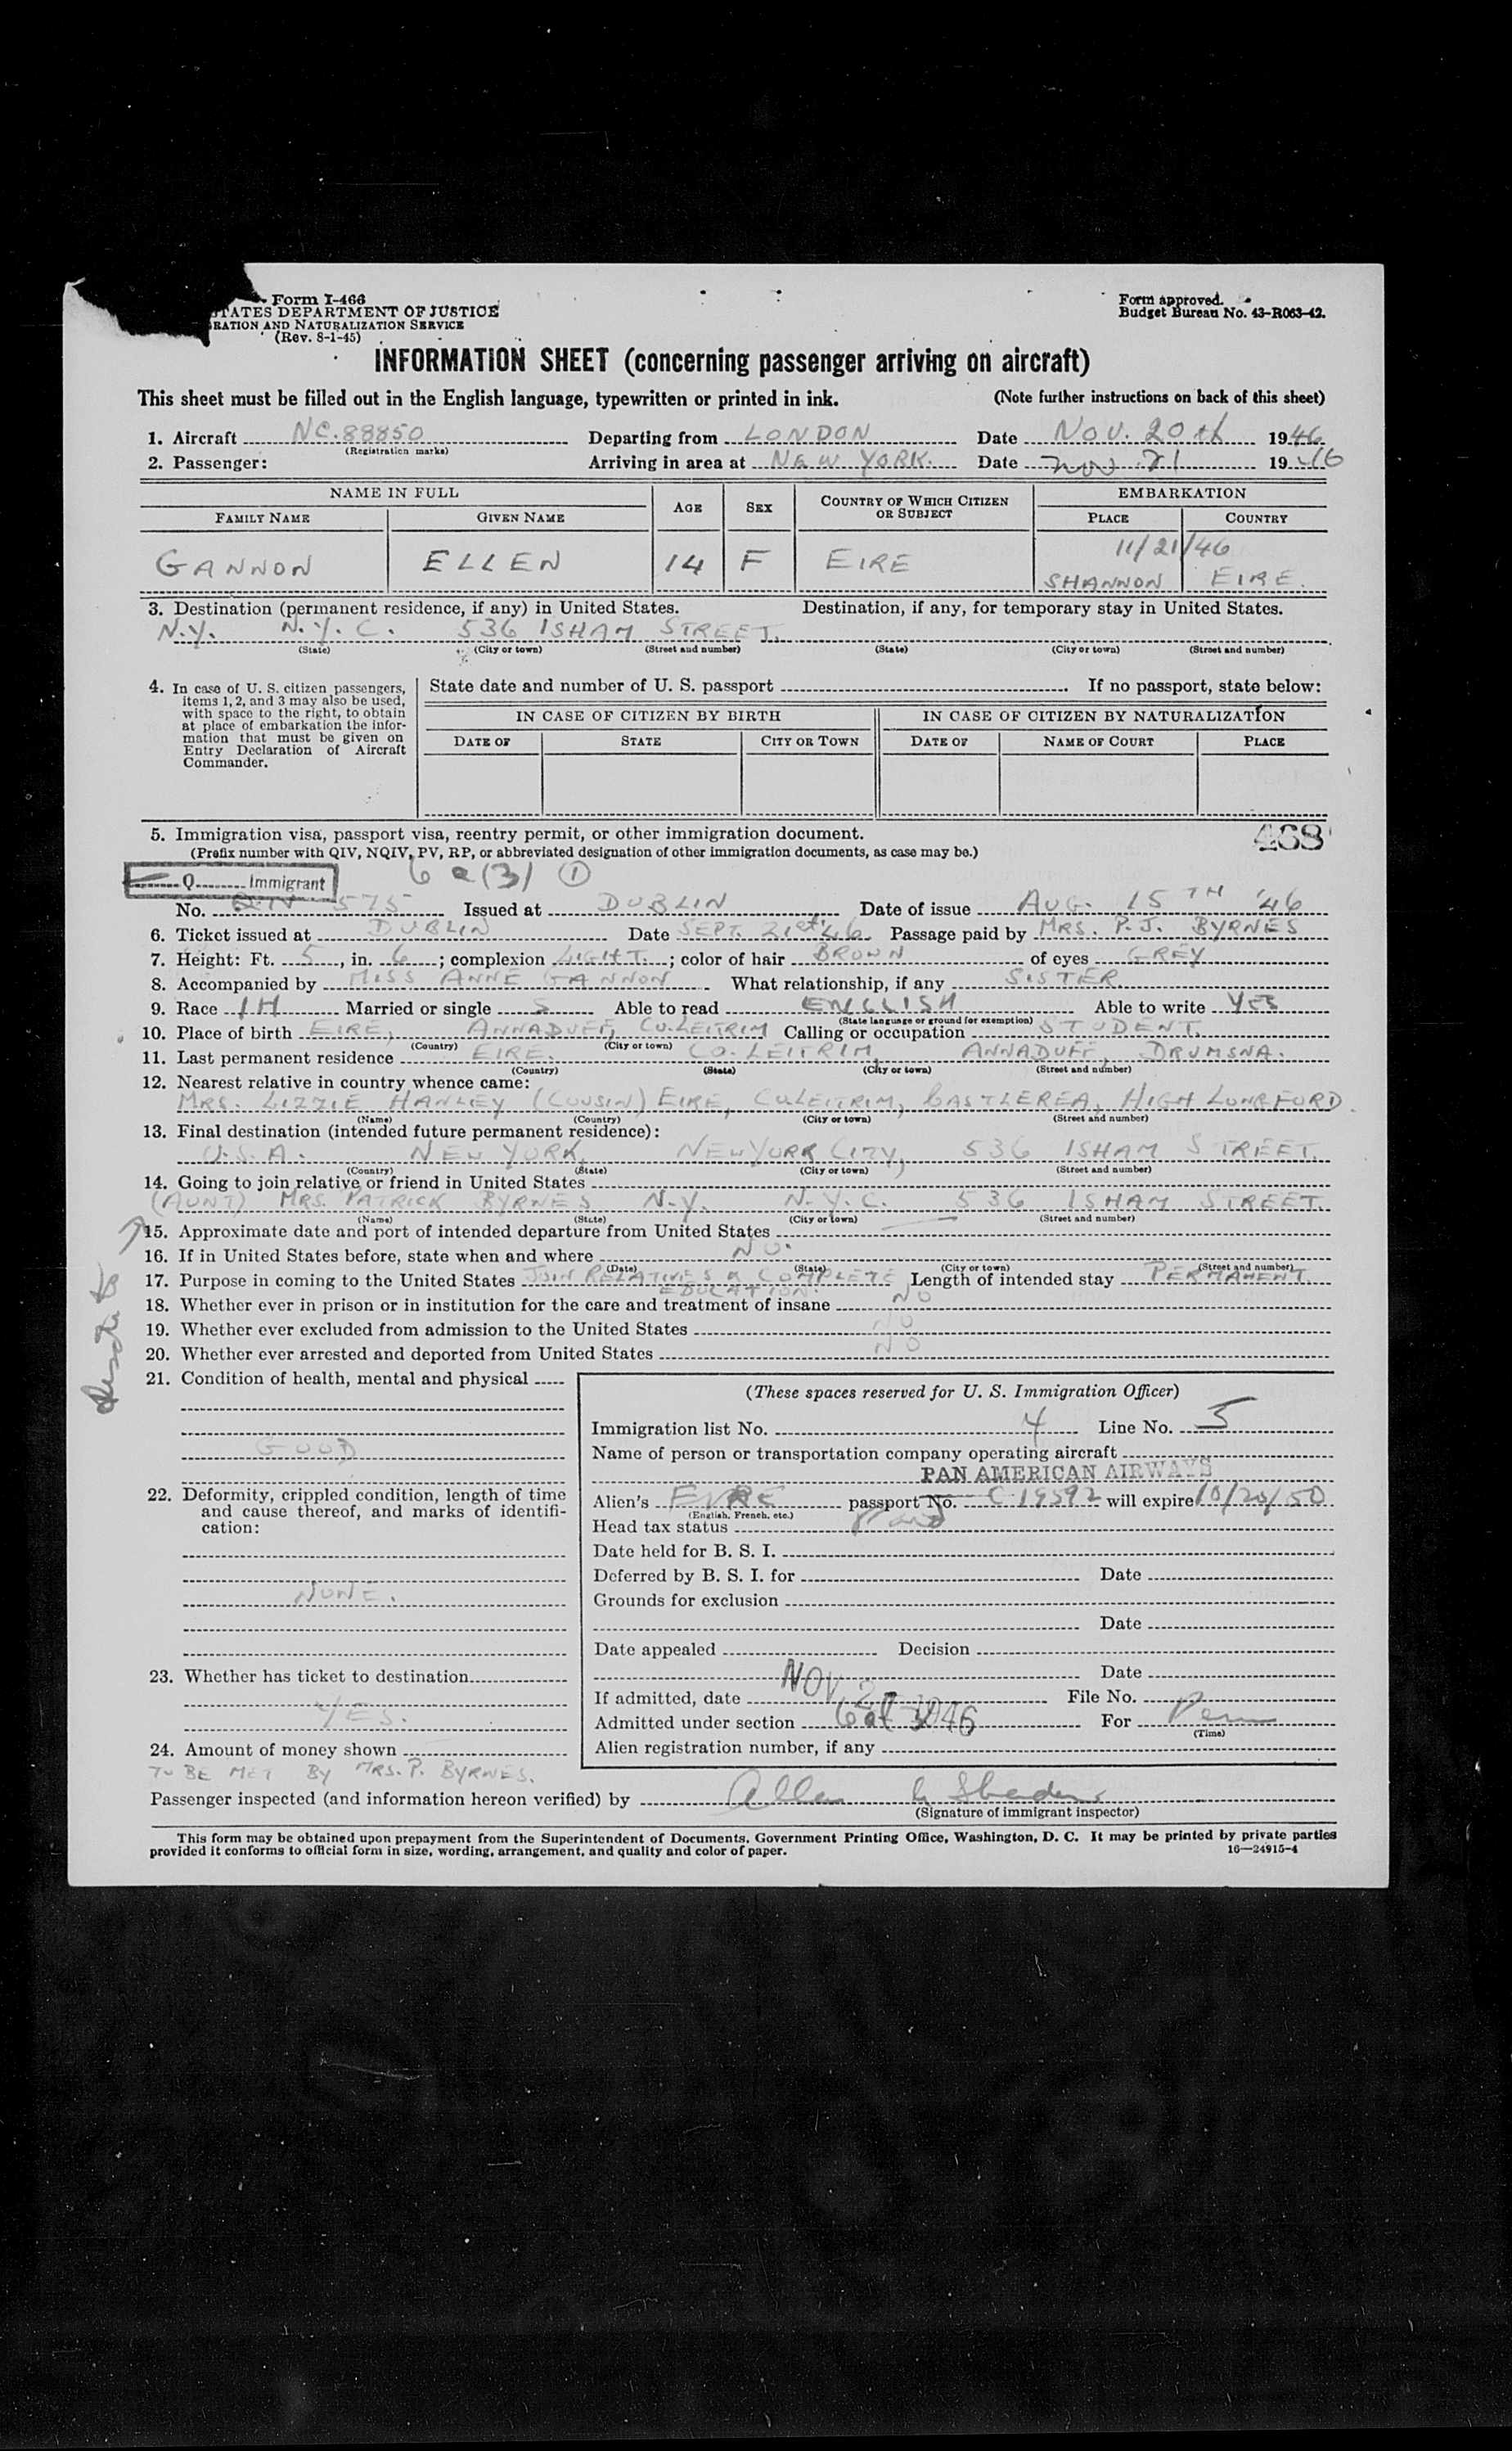 Form I-466
STATES DEPARTMENT OF JUSTICE
RATION AND NATURALIZATION SERVICE
(Rev. 8-1-45)
Form approved.
Budget Bureau No. 43-R063-42.
INFORMATION SHEET (concerning passenger arriving on aircraft)
This sheet must be filled out in the English language, typewritten or printed in ink. (Note further instructions on back of this sheet)
1. Aircraft NC.88850 Departing from LONDON Date NOV. 20th 1946
(Registration marks)
2. Passenger: Arriving in area at NEW YORK. Date Nov 21 1946
NAME IN FULL AGE SEX COUNTRY OF WHICH CITIZEN OR SUBJECT EMBARKATION
FAMILY NAME GIVEN NAME PLACE COUNTRY
11/21/46
GANNON ELLEN 14 F EIRE SHANNON EIRE.
3. Destination (permanent residence, if any) in United States. Destination, if any, for temporary stay in United States.
N.Y. N.Y.C. 536 ISHAM STREET.
(State) (City or town) (Street and number) (State) (City or town) (Street and number)
4. In case of U. S. citizen passengers, items 1, 2, and 3 may also be used, with space to the right, to obtain at place of embarkation the information that must be given on Entry Declaration of Aircraft Commander.
State date and number of U. S. passport . If no passport, state below:
IN CASE OF CITIZEN BY BIRTH IN CASE OF CITIZEN BY NATURALIZATION
DATE OF STATE CITY OR TOWN DATE OF NAME OF COURT PLACE
5. Immigration visa, passport visa, reentry permit, or other immigration document. 468
(Prefix number with QIV, NQIV, PV, RP, or abbreviated designation of other immigration documents, as case may be.)
Q Immigrant 6 a(3) 1
No. QIV 575 Issued at DUBLIN Date of issue AUG. 15TH '46
6. Ticket issued at DUBLIN Date SEPT. 21st '46 Passage paid by MRS. P.J. BYRNES
7. Height: Ft. 5, in. 6; complexion LIGHT.; color of hair BROWN of eyes GREY
8. Accompanied by MISS ANNE GANNON. What relationship, if any SISTER
9. Race IH Married or single S Able to read ENGLISH Able to write YES
(State language or ground for exemption)
10. Place of birth EIRE, ANNADUFF, CO. LEITRIM Calling or occupation STUDENT.
(Country) (City or town)
11. Last permanent residence EIRE. CO. LEITRIM, ANNADUFF, DRUMSNA.
(Country) (State) (City or town) (Street and number)
12. Nearest relative in country whence came:
MRS. LIZZIE HANLEY (COUSIN) EIRE, CO.LEITRIM, CASTLEREA, HIGH
(Name) (Country) (City or town) (Street and number)
13. Final destination (intended future permanent residence):
U.S.A. NEW YORK, NEW YORK CITY, 536 ISHAM STREET.
(Country) (State) (City or town) (Street and number)
14. Going to join relative or friend in United States
(AUNT) MRS. PATRICK BYRNES N.Y. N.Y.C. 536 ISHAM STREET.
(Name) (State) (City or town) (Street and number)
15. Approximate date and port of intended departure from United States
16. If in United States before, state when and where NO.
(Date) (State) (City or town) (Street and number)
17. Purpose in coming to the United States JOIN RELATIVES & COMPLETE EDUCATION. Length of intended stay PERMANENT.
18. Whether ever in prison or in institution for the care and treatment of insane NO
19. Whether ever excluded from admission to the United States NO
20. Whether ever arrested and deported from United States NO
21. Condition of health, mental and physical
GOOD
22. Deformity, crippled condition, length of time and cause thereof, and marks of identification:
NONE.
23. Whether has ticket to destination
YES.
24. Amount of money shown
TO BE MET BY MRS. P. BYRNES.
(These spaces reserved for U. S. Immigration Officer)
Immigration list No. 4 Line No. 5
Name of person or transportation company operating aircraft
PAN AMERICAN AIRWAYS
Alien's EIRE passport No. C 19592 will expire 10/20/50
(English, French, etc.)
Head tax status Paid
Date held for B. S. I.
Deferred by B. S. I. for Date
Grounds for exclusion
Date
Date appealed Decision
Date
If admitted, date NOV 21 1946 File No.
Admitted under section 6 a 3 For Perm
(Time)
Alien registration number, if any
Passenger inspected (and information hereon verified) by Allen
(Signature of immigrant inspector)
This form may be obtained upon prepayment from the Superintendent of Documents, Government Printing Office, Washington, D. C. It may be printed by private parties
provided it conforms to official form in size, wording, arrangement, and quality and color of paper. 16—24915-4